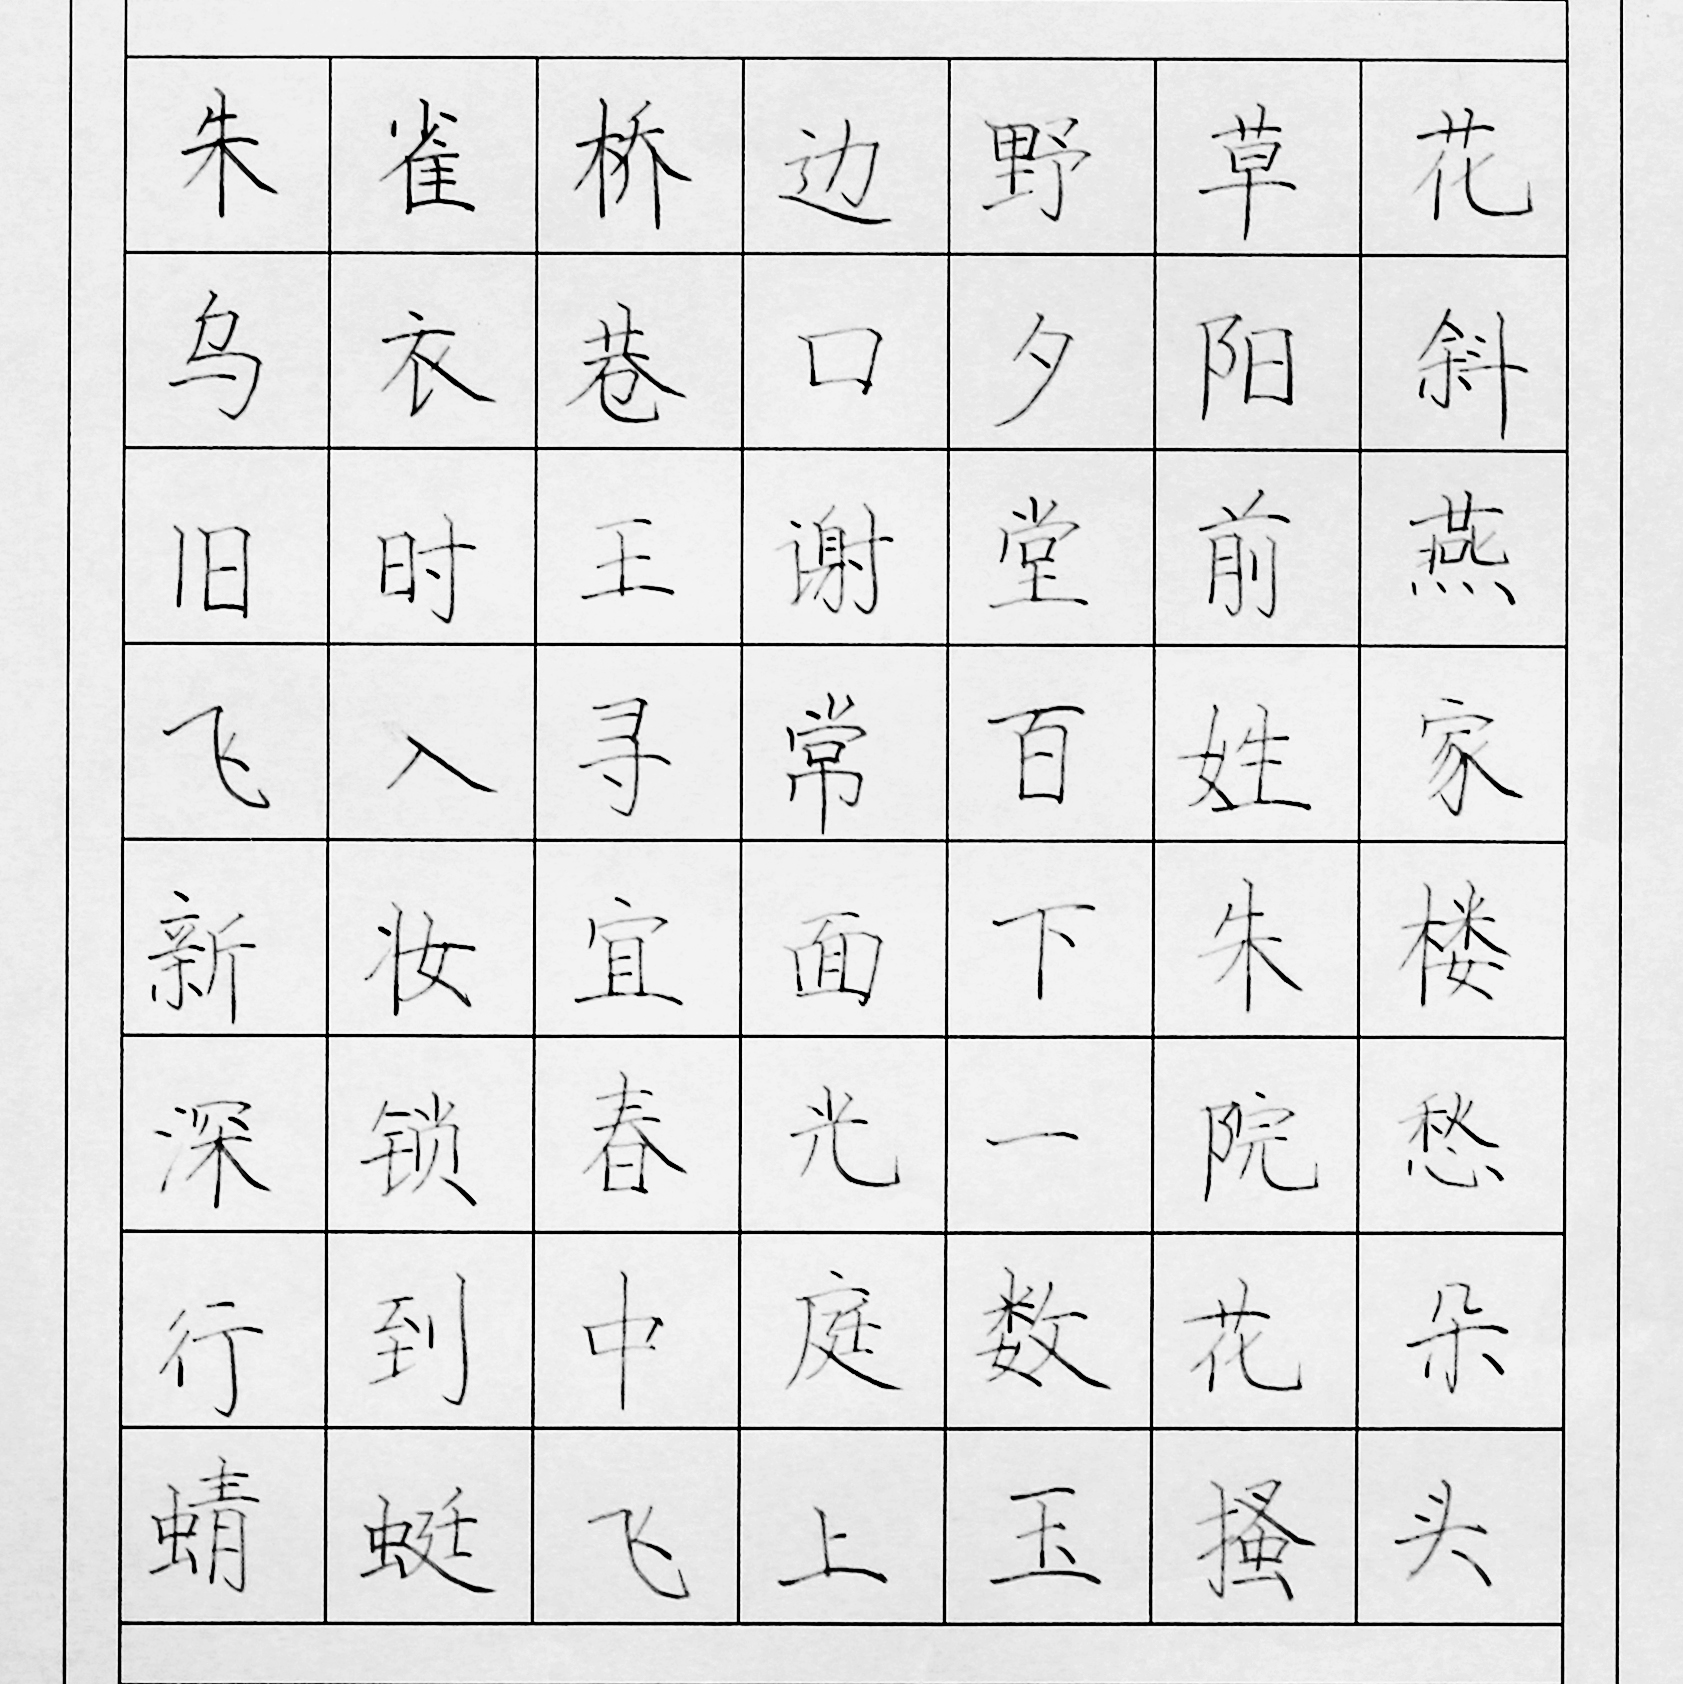 朱雀桥边野草花
乌衣巷口夕阳斜
旧时王谢堂前燕
飞入寻常百姓家
新妆宜面下朱楼
深锁春光一院愁
行到中庭数花朵
蜻蜓飞上玉搔头